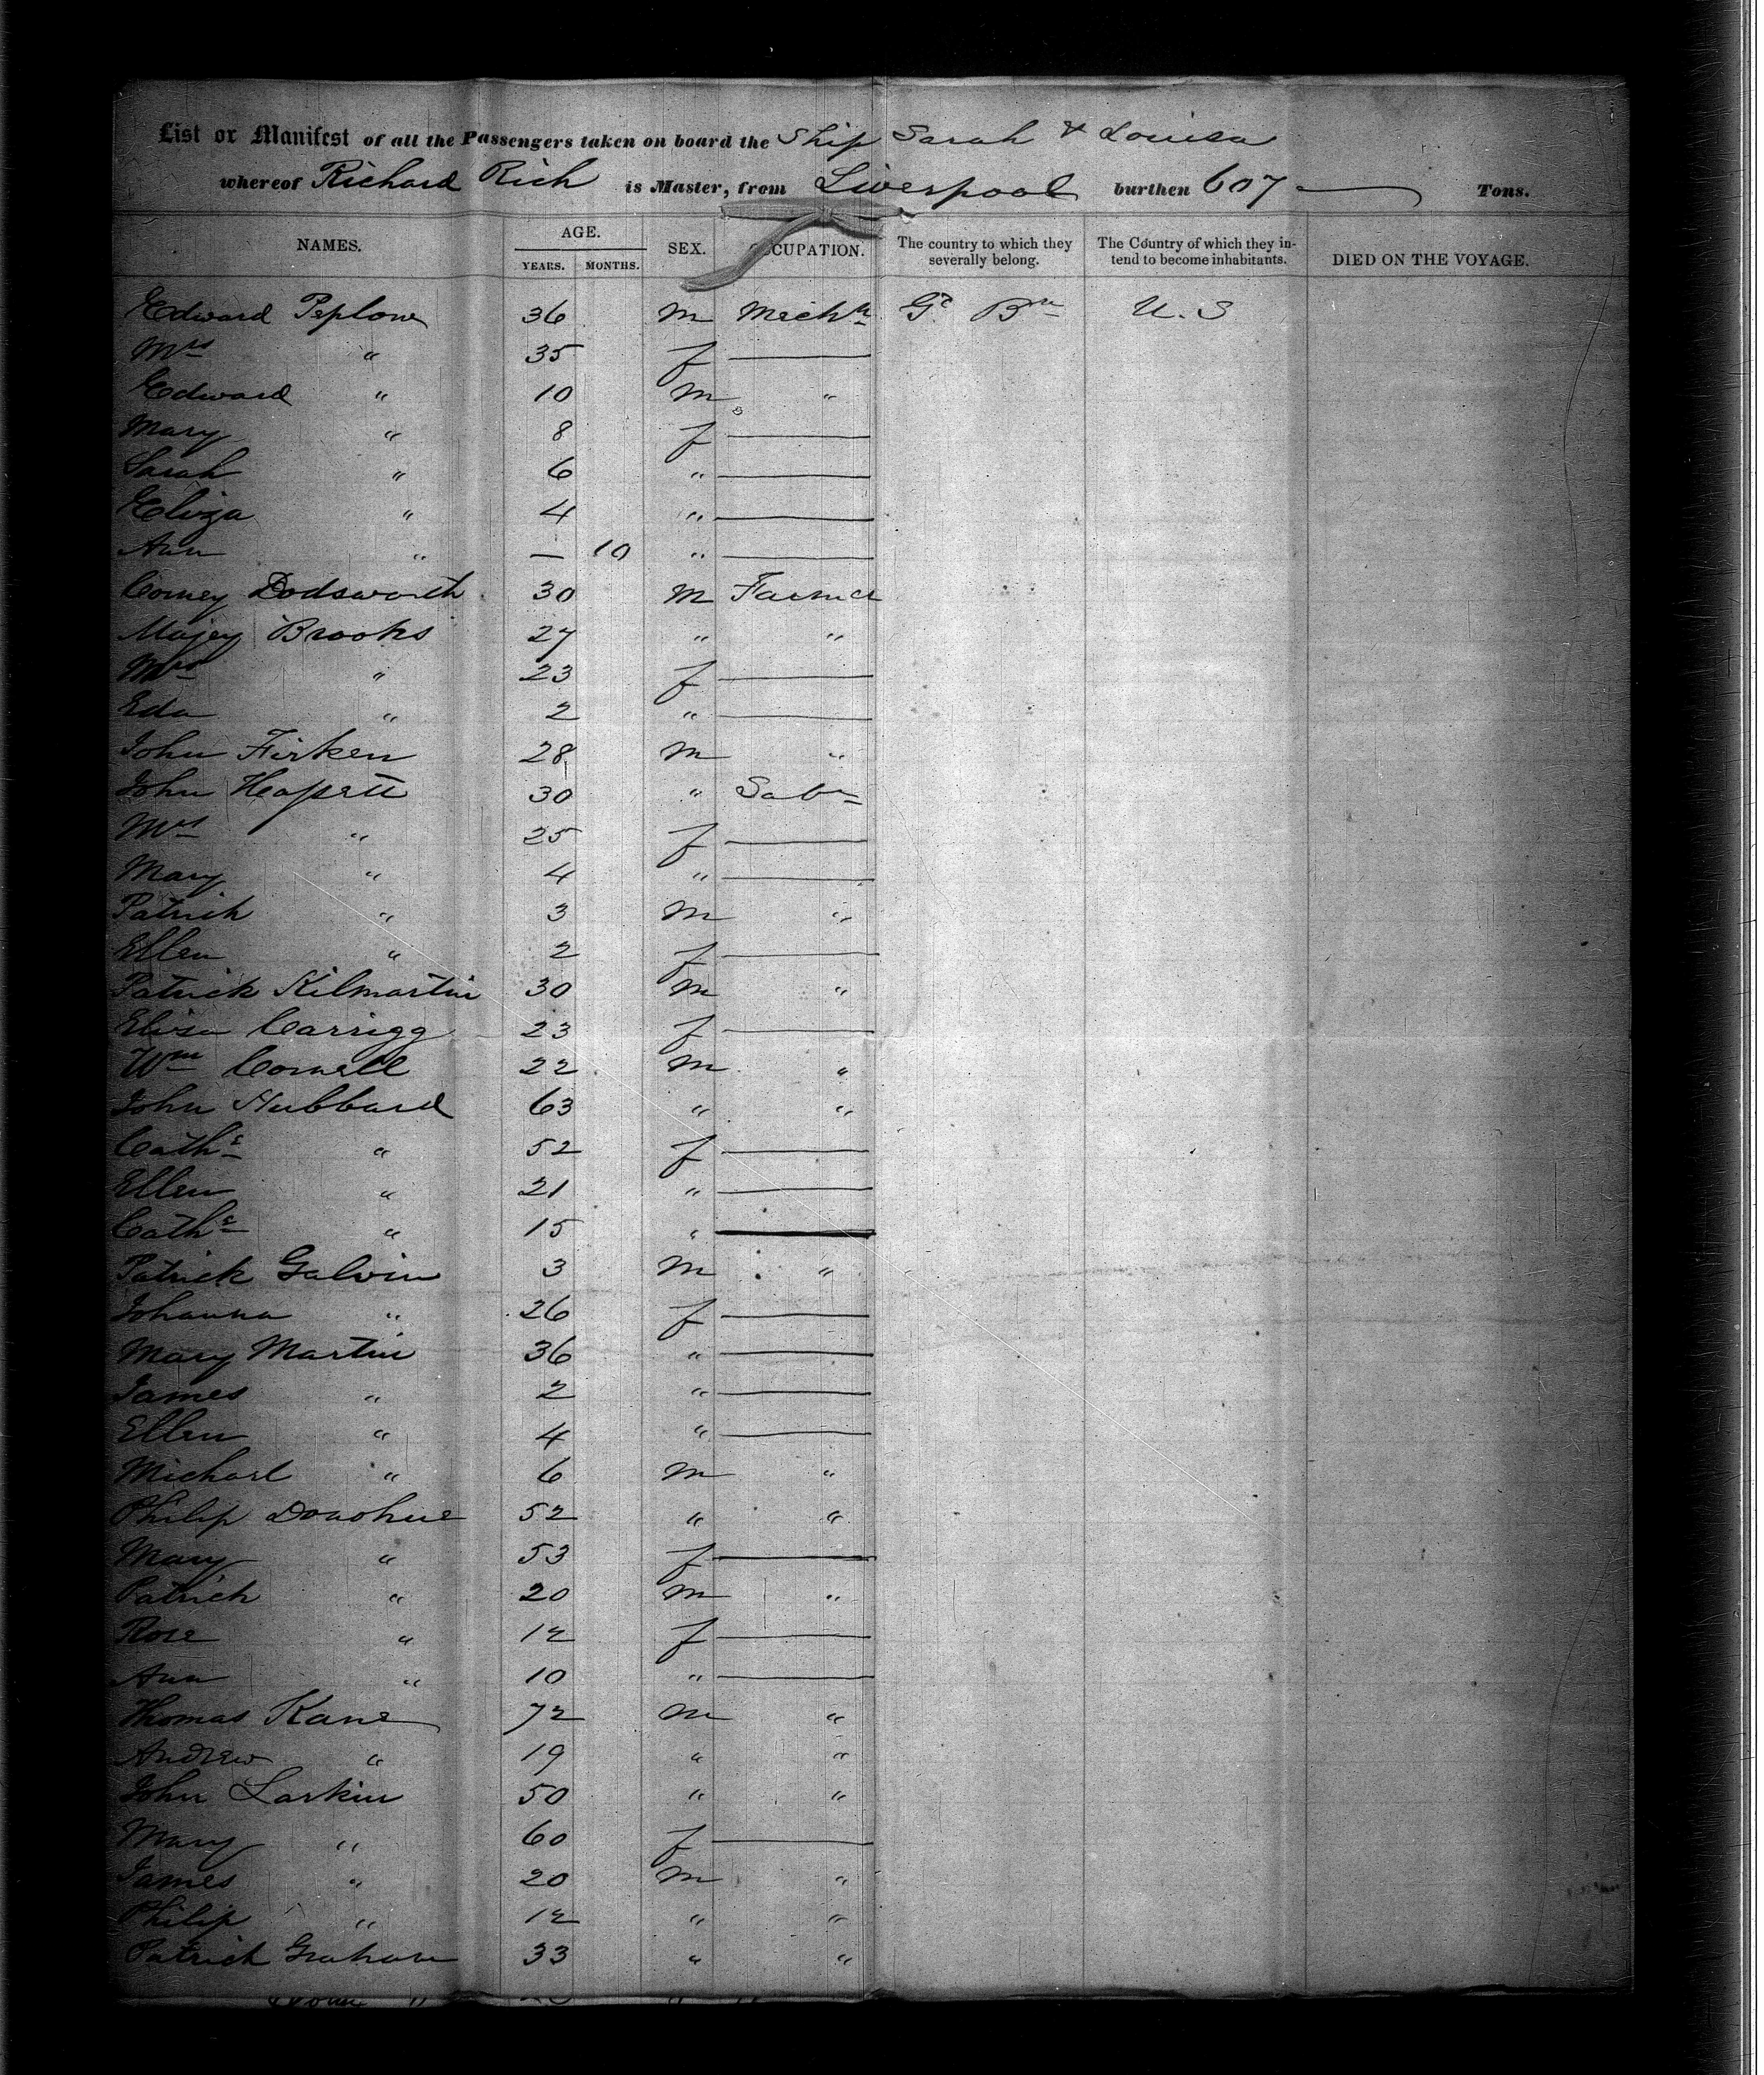 List or Manifest of all the Passengers taken on board the Ship Sarah & Louisa
whereof Richard Rich is Master, from Liverpool burthen 607 Tons.
NAMES. AGE. YEARS. MONTHS. SEX. OCCUPATION. The country to which they severally belong. The Country of which they intend to become inhabitants. DIED ON THE VOYAGE.
Edward Peplow 36 m Mechc Gt Brn U.S
Mrs " 35 f —
Edward " 10 m "
Mary " 8 f —
Sarah " 6 " —
Eliza " 4 " —
Ann " — 10 " —
Corney Dodsworth 30 m Farmer
Brooks 27 " "
Mrs " 23 f —
Eda " 2 " —
John Firken 28 m "
John 30 "
Mrs " 25 f —
Mary " 4 " —
Patrick " 3 m "
Ellen " 2 f —
Patrick Kilmartin 30 m "
Eliza Carrigg 23 f —
Wm Cornell 22 m "
John Hubbard 63 " "
Cathe " 52 f —
Ellen " 21 " —
Cathe " 15 " —
Patrick Galvin 3 m "
Johanna " 26 f —
Mary Martin 36 " —
James " 2 " —
Ellen " 4 " —
Michael " 6 m "
Philip Donohue 52 " "
Mary " 53 f —
Patrick " 20 m "
Rose " 12 f —
Ann " 10 " —
Thomas Kane 72 m "
Andrew " 19 " "
John Larkin 50 " "
Mary " 60 f —
James " 20 m "
Philip " 12 " "
Patrick Graham 33 " "